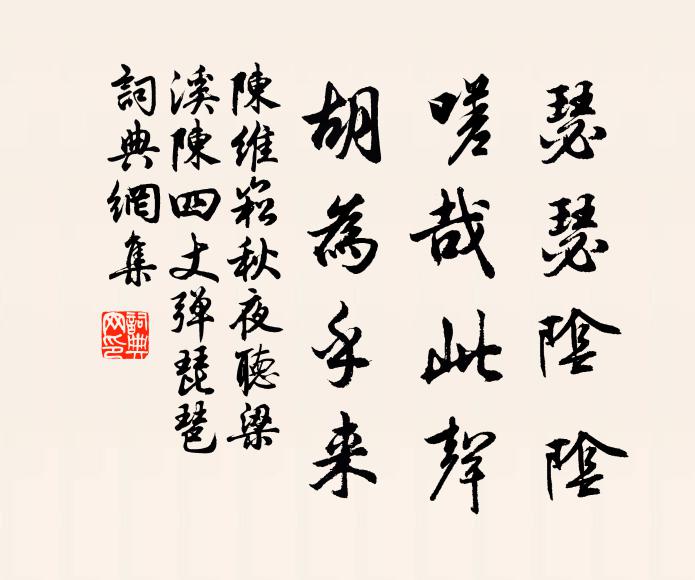 瑟瑟陰陰
嗟哉此聲
胡為乎来
陳維崧秋夜聽梁
溪陳四丈弹琵琶
詞典網集
詞典
网印